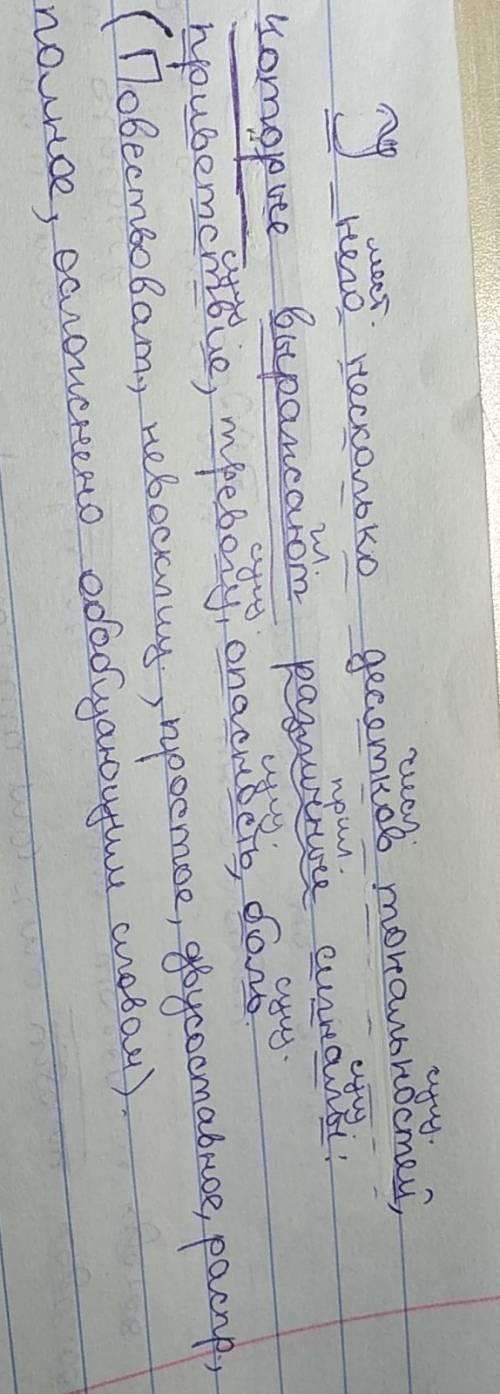 У него несколько десятков тональностей,
мест. числ. сущ.
которые выражают различные сигналы:
гл. прил. сущ.
приветствие, тревогу, опасность, боль.
сущ. сущ. сущ. сущ.
(Повествоват., невосклиц., простое, двусоставное, распр.,
полное, осложнено обобщающим словом).